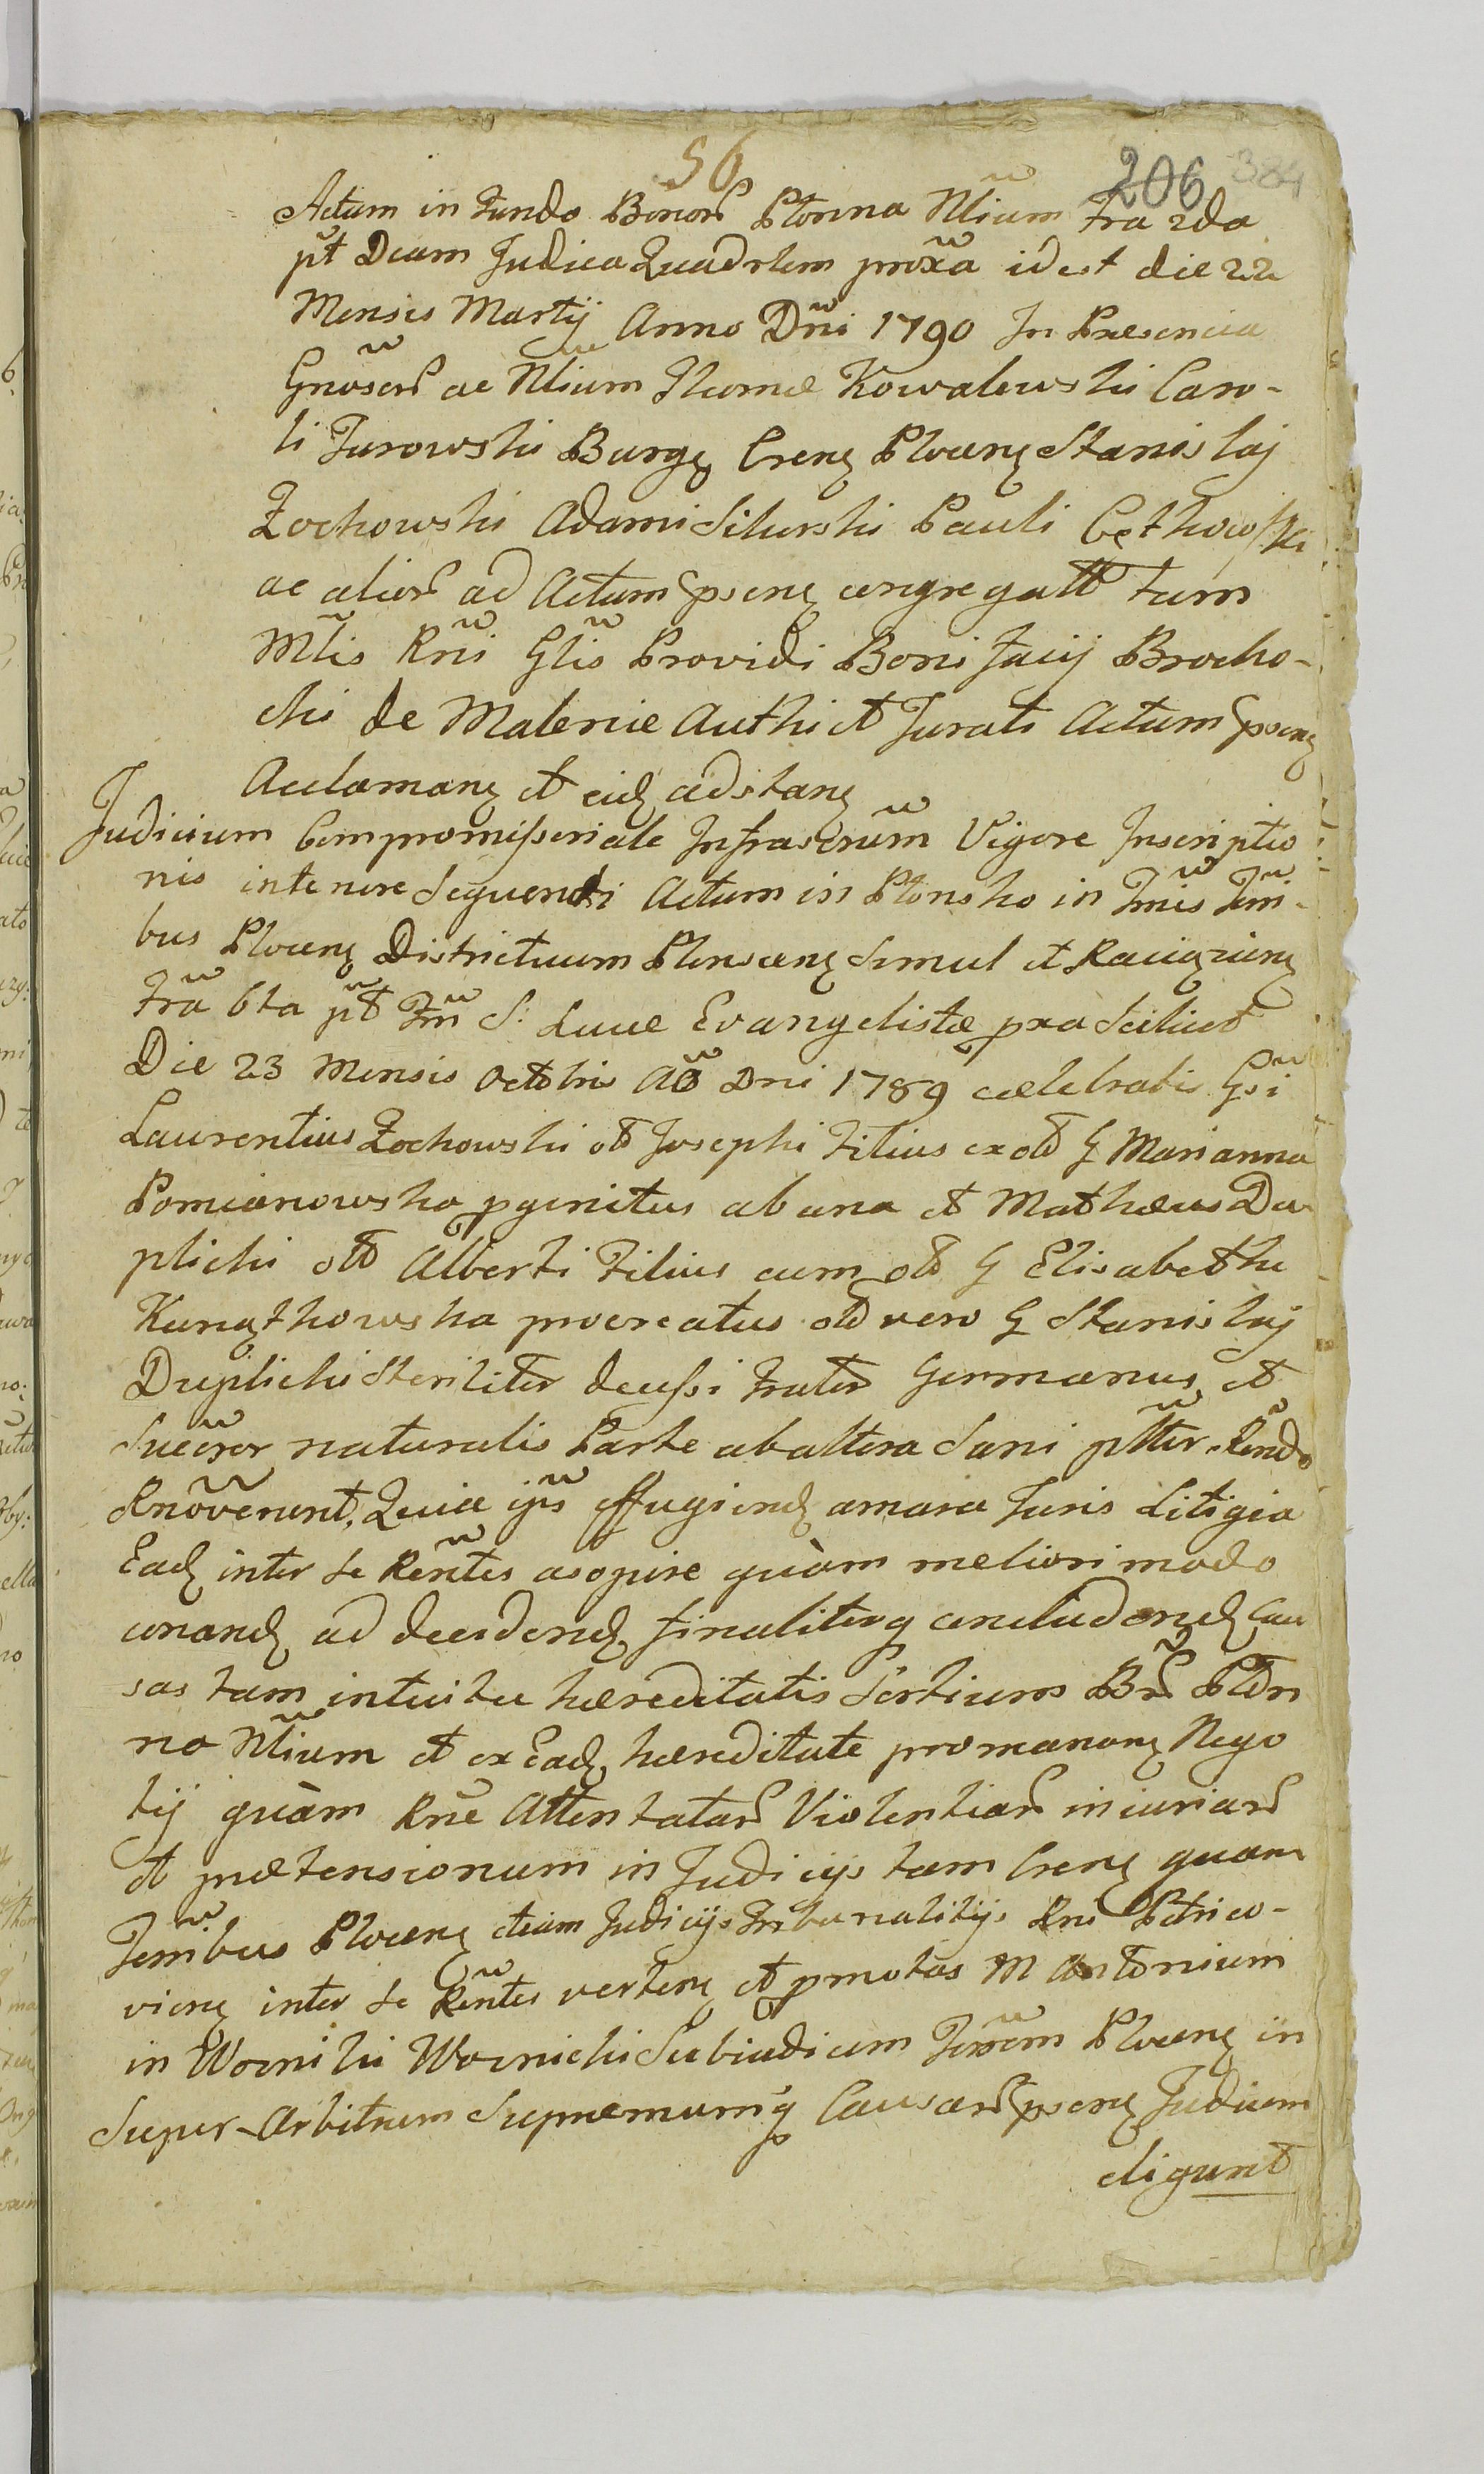 56
206 384
Actum in Fundo Bonor Płonna Nlium Fra 2da
pt Dcam Judica Quadrlem proxa idest die 22
Mensis Martij Anno Dni 1790 In Praesencia
Gnosor ac Nlium Thomae Kowalewski Caro-
li Turowski Burg Cren Plocen Stanislaj
Zochowski Adami Silurski Pauli Cethowski
ac alior ad Actum psen congregatt tum
Mlis Rni Glis Providi Bonifacij Brocho-
cki de Malenie Authi et Jurati Actum psen
Acclaman et eid adstan
Judicium Compromissoriale Infrascrum Vigore Inscriptio
nis intenore Sequenti Actum in Płonsko in Tmis Trri-
bus Plocen Districtuum Plonscen Simul et Raciązien
Fra 6ta pt Fm S: Lucae Evangelistae pxa Scilicet
Die 23 Mensis Octobris Ao Dni 1789 caelebratis Gsi
Laurentius Zochowski ol Josephi Filius ex ol G Marianna
Pomianowska pgenitus ab una et Mathaeus Du
plicki olt Alberti Filius cum ol G Elisabetha
Kunathowska procreatus ol vero G Stanislaj
Duplicki Steriliter decessi Frater Germanus et
Succsor naturalis Parte ab altera Sani ptter Rendo
Rnoverunt, Quia ips effugiend amara Juris Litigia
Ead inter se Rentes asopire quàm meliori modo
conand ad decidend finaliterq concludend Cau
sas tam intuitu haereditatis Sortium Br Płon
na Nlium et ex Ead haereditate promanan Nego
tij quàm Rne Attentatar Violentiar iniuriar
et praetensionum in Judicijs tam Cren quam
Terribus Plocen etiam Judicijs Tribunalitijs Rni Petrico-
vien inter se Rentes verten et pmotas M Antonium
in Worniki Woernicki Subiudicem Terrem Plocen in
Super-Arbitrum Supremumq Causar psen Judicem
eligunt